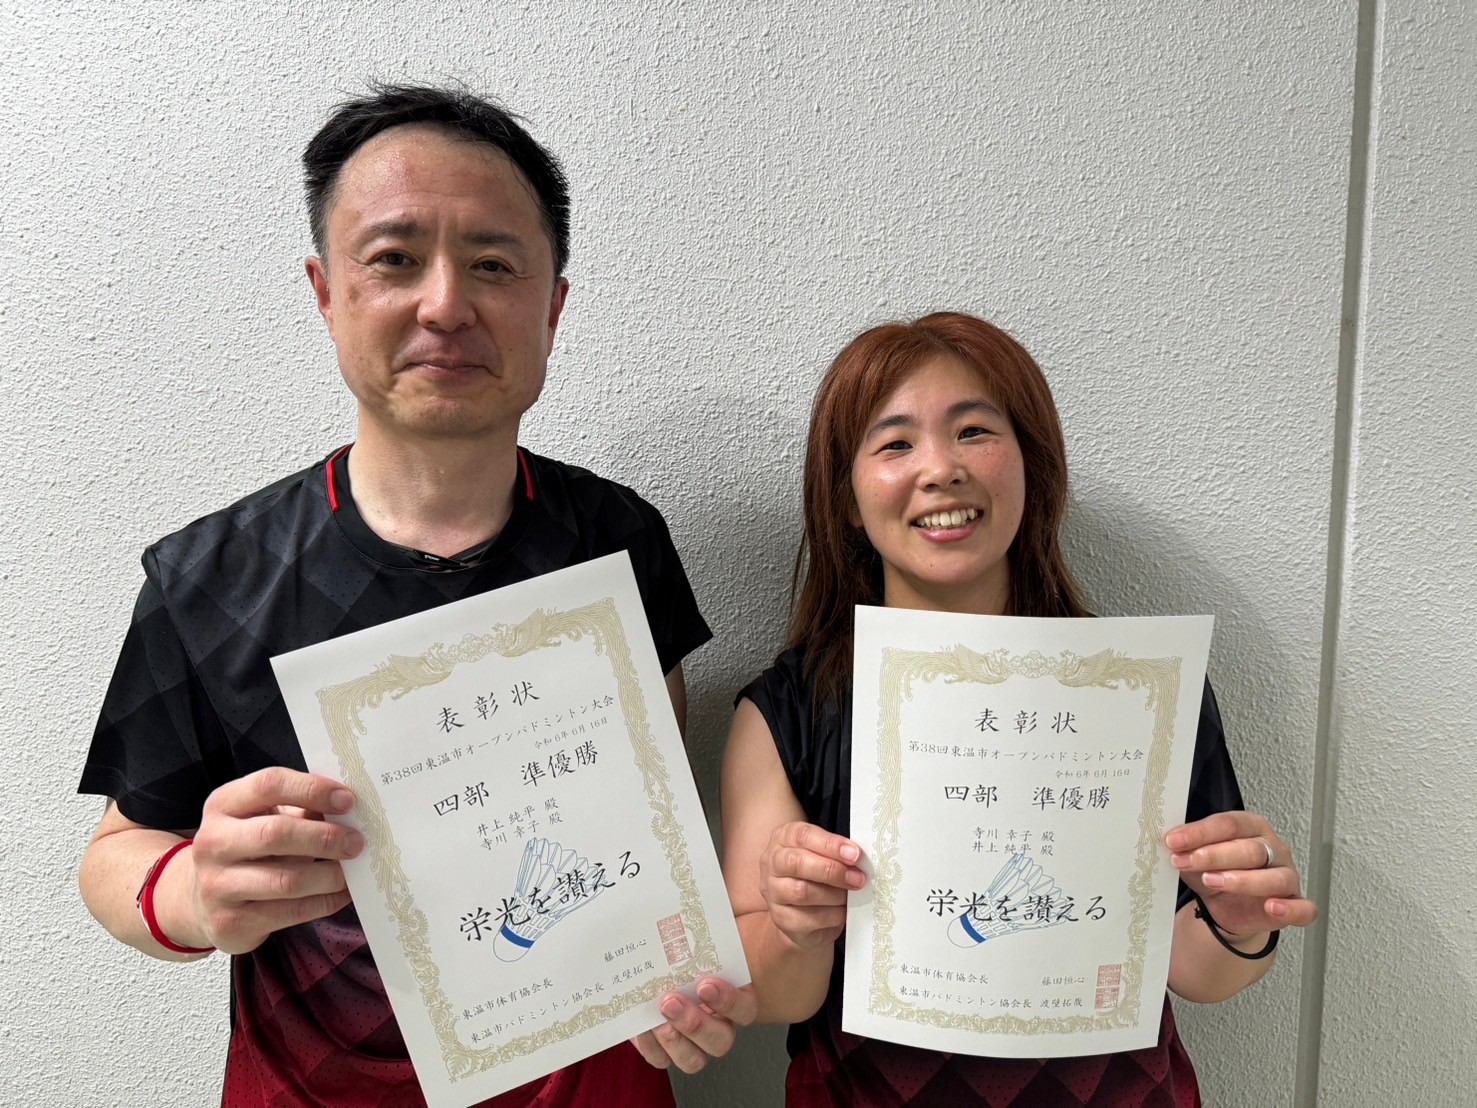 表彰状
第38回東温市オープンバドミントン大会
令和6年6月16日
四部 準優勝
井上 純平 殿
寺川 幸子 殿
栄光を讃える
東温市体育協会長 藤田恒心
東温市バドミントン協会長 渡壁拓哉
表彰状
第38回東温市オープンバドミントン大会
令和6年6月16日
四部 準優勝
寺川 幸子 殿
井上 純平 殿
栄光を讃える
東温市体育協会長 藤田恒心
東温市バドミントン協会長 渡壁拓哉